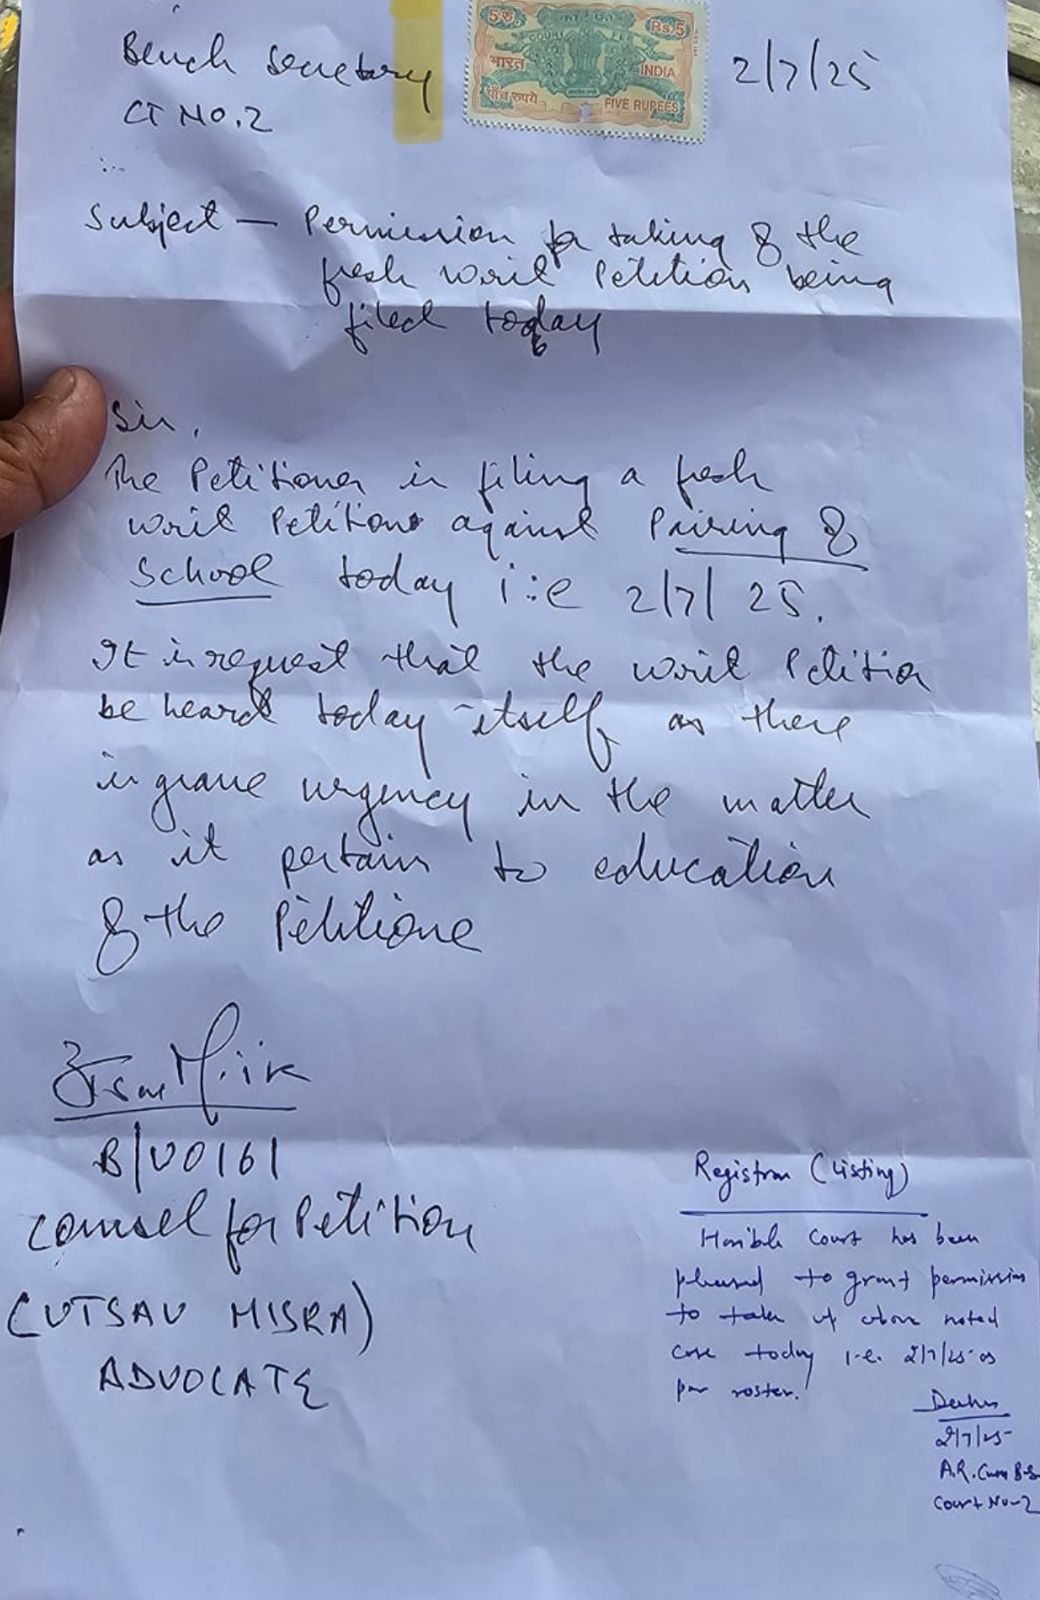 Bench Secretary
CT NO.2
5 रु
Rs.5
भारत
INDIA
पाँच रुपये
FIVE RUPEES
2/7/25
Subject — Permission for taking of the
fresh writ Petition being
filed today
Sir,
The Petitioner is filing a fresh
writ Petition against Pairing of
School today i:e 2/7/25.
It is request that the writ Petition
be heard today itself as there
is grave urgency in the matter
as it pertains to education
of the Petitione
B/U0161
Counsel for Petition
(UTSAV MISRA)
ADVOCATE
Registrar (Listing)
Hon'ble Court has been
pleased to grant permission
to take up above noted
case today i.e. 2/7/25 as
per roster.
2/7/25
A.R. Cum B.S.
Court No-2